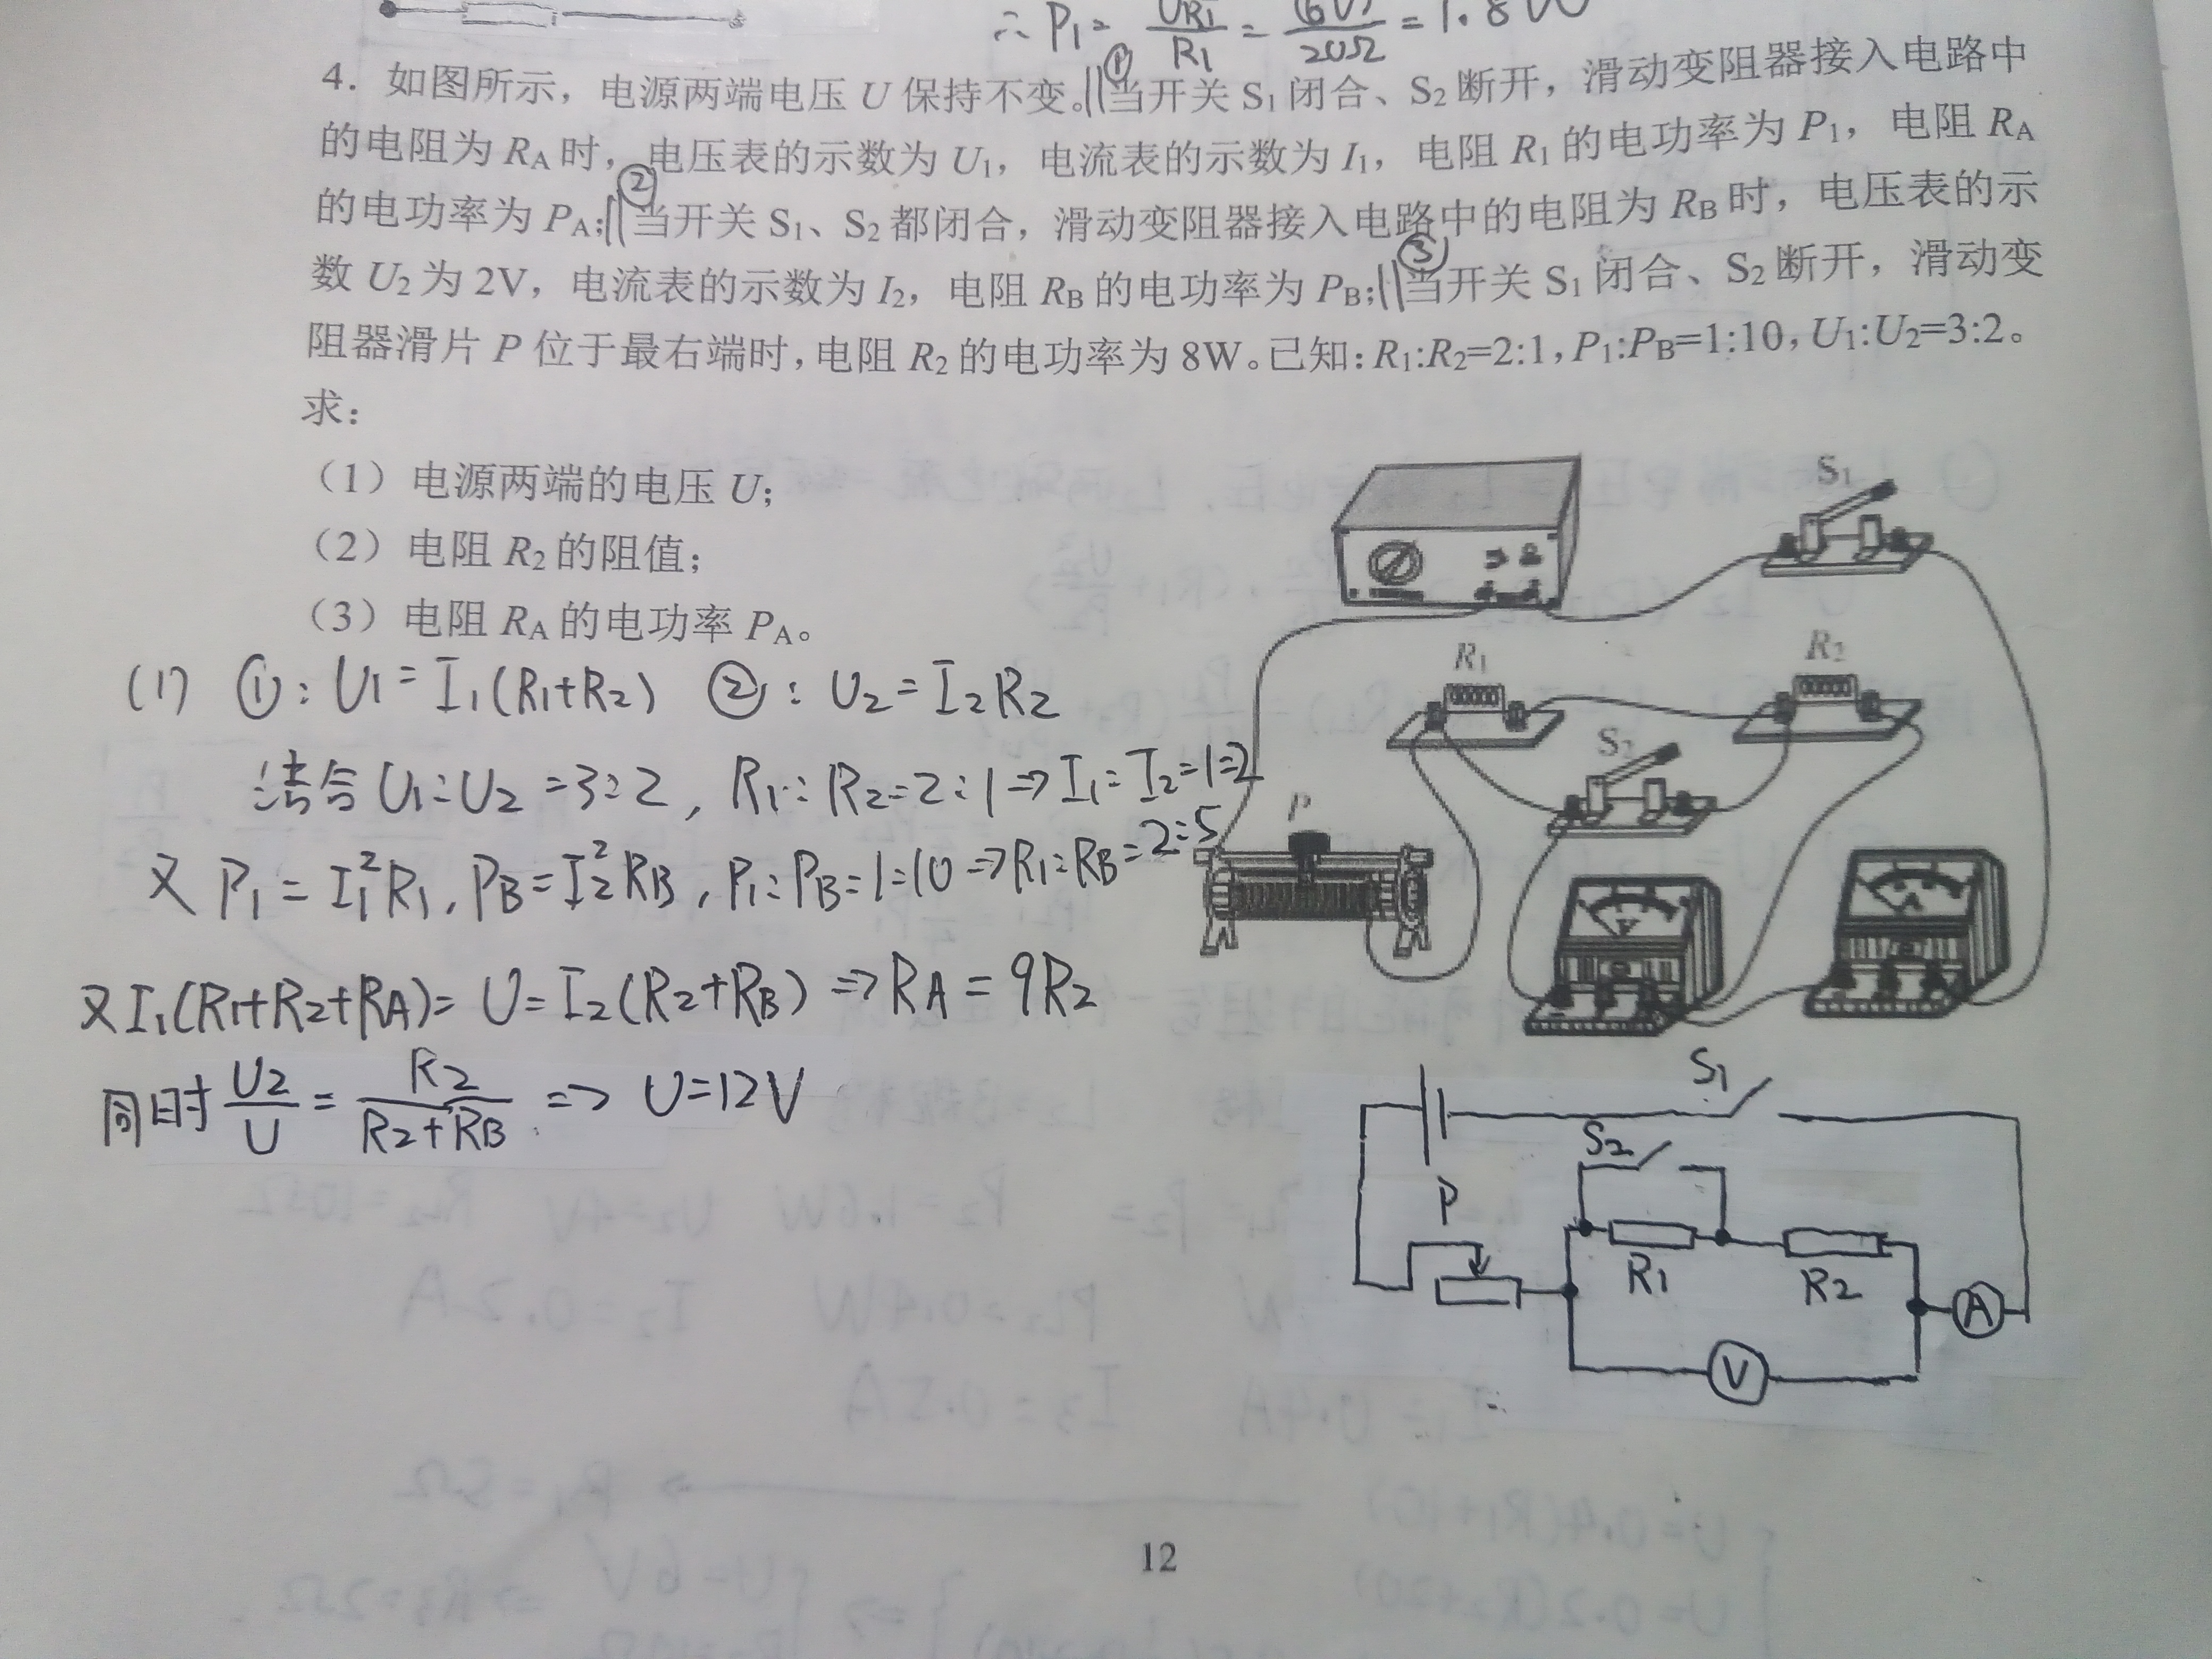 ∴ P1 = UR1/R1 = (6V)/20Ω = 1.8W
4. 如图所示，电源两端电压 U 保持不变。‖①当开关 S1 闭合、S2 断开，滑动变阻器接入电路中
的电阻为 RA 时，电压表的示数为 U1，电流表的示数为 I1，电阻 R1 的电功率为 P1，电阻 RA
的电功率为 PA；‖②当开关 S1、S2 都闭合，滑动变阻器接入电路中的电阻为 RB 时，电压表的示
数 U2 为 2V，电流表的示数为 I2，电阻 RB 的电功率为 PB；‖③当开关 S1 闭合、S2 断开，滑动变
阻器滑片 P 位于最右端时，电阻 R2 的电功率为 8W。已知：R1:R2=2:1，P1:PB=1:10，U1:U2=3:2。
求：
（1）电源两端的电压 U；
（2）电阻 R2 的阻值；
（3）电阻 RA 的电功率 PA。
S1
R1
R2
S2
P
V
A
(1) ①: U1=I1(R1+R2) ②: U2=I2R2
结合 U1:U2=3:2, R1:R2=2:1⇒I1:I2=1:2
又 P1=I1²R1, PB=I2²RB, P1:PB=1:10⇒R1:RB=2:5
又I1(R1+R2+RA)=U=I2(R2+RB)⇒RA=9R2
同时 U2/U = R2/(R2+RB) ⇒ U=12V
S1
S2
P
R1
R2
A
V
12